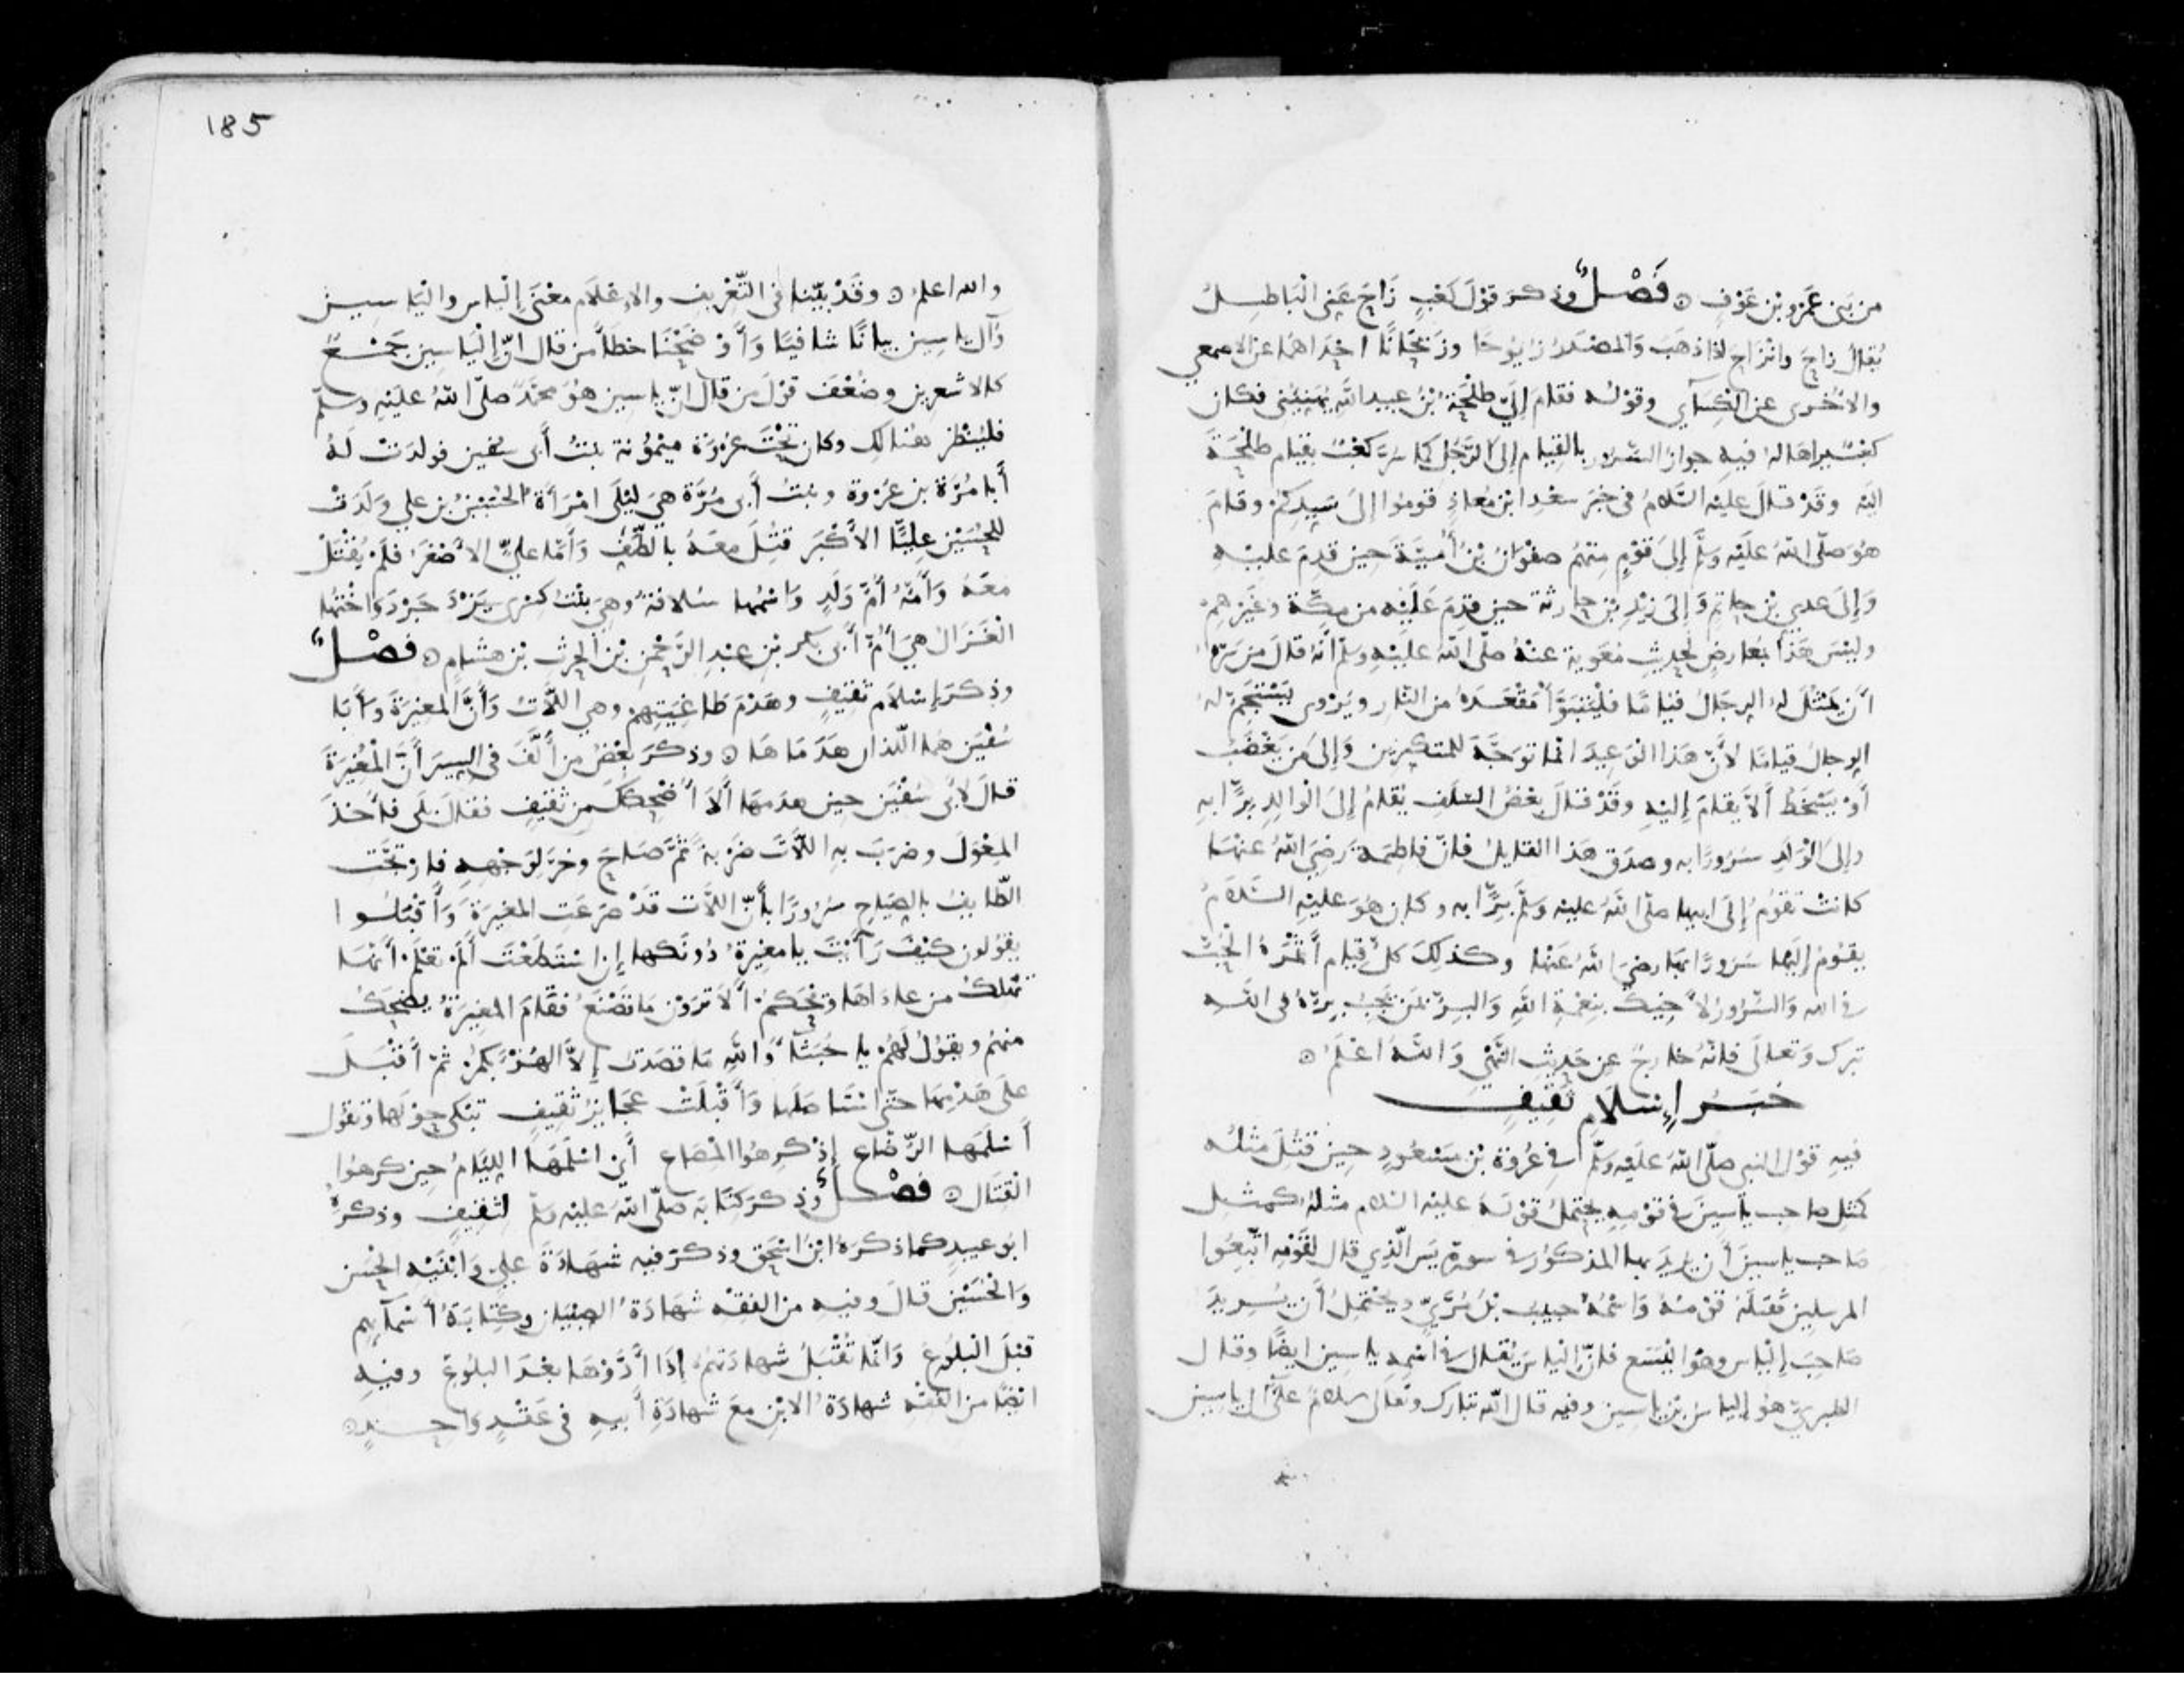 من بني عمرو بن عوف ۞ فَصْلٌ وذكر قول كعب زاح عني الباطل
يقال زاح وانزاح إذا ذهب والمصدر زيوحا وزيحانا احداهما عن الاصمعي
والاخرى عن الكسآي وقوله فقام إليّ طلحة بن عبيد الله يهنيني فكان
كعب يراها له فيه جواز السرور بالقيام إلى الرجل كما سُرّ كعب بقيام طلحة
اليه وقد قال عليه السلام في خبر سعد ابن معاذ قوموا إلى سيدكم وقام
هو صلّى الله عليه وسلم إلى قوم منهم صفوان بن أمية حين قدم عليه
وإلى عدي بن حاتم وإلى زيد بن حارثة حين قدم عليه من مكة وغيرهم
وليس هذا بمعارض لحديث معوية عنه صلّى الله عليه وسلم أنه قال من سره
أن يمثل له الرجال قياما فليتبوأ مقعده من النار ويروى يستجم له
الرجال قياما لأن هذا الوعيد انما توجه للمتكبرين وإلى من يغضب
أو يسخط ألا يقام إليه وقد قال بعض السلف يقام إلى الوالد برّا به
وإلى الولد سرورا به وصدق هذا القايل فان فاطمة رضي الله عنها
كانت تقوم إلى ابيها صلّى الله عليه وسلم برّا به وكان هو عليه السلام
يقوم إليها سرورا بها رضي الله عنها وكذلك كل قيام أثمره الحب
في الله والسرور لأخيك بنعمة الله والبر بمن يحب بره في الله
تبرك وتعالى فانه خارج عن حديث النهي والله اعلم ۞
خبر إسلام ثقيف
فيه قول النبي صلّى الله عليه وسلم في عروة بن مسعود حين قتل مثله
كمثل صاحب ياسين في قومه يحتمل قوله عليه السلام مثله كمثل
صاحب ياسين أن يريد بها المذكور في سورة يس الذي قال لقومه اتبعوا
المرسلين فقتله قومه واسمه حبيب بن مُرّيّ ويحتمل أن يريد
صاحب إلياس وهو اليسع فان إلياس يقال في اسمه ياسين ايضا وقال
الطبري هو إلياس بن ياسين وفيه قال الله تبارك وتعالى سلام على آل ياسين
185
والله اعلم ۞ وقد بيّنا في التعريف والاعلام معنى إلياس والياسين
وآل ياسين بيانا شافيا وأوضحنا خطأ من قال انّ إلياسين جمع
كالاشعرين وضعف قول من قال انّ ياسين هو محمد صلّى الله عليه وسلم
فلينظر هنالك وكان تحت عروة ميمونة بنت أبي سفين فولدت له
أبا مرة بن عروة وبنت أبي مرة هي ليلى امرأة الحسين بن علي ولدت
للحسين عليّا الأكبر قتل معه بالطف وأما علي الأصغر فلم يقتل
معه وأمه أم ولد واسمها سلافة وهي بنت كسرى يزدجرد واختها
الغزال هي أم أبي بكر بن عبد الرحمن بن الحرث بن هشام ۞ فصل
وذكر إسلام ثقيف وهدم طاغيتهم وهي اللات وأن المغيرة وأبا
سفين هما اللذان هدماها ۞ وذكر بعض من ألّف في السير أن المغيرة
قال لأبي سفين حين هدمها ألا أضحكك من ثقيف فقال بلى فأخذ
المعول وضرب به اللات ضربة ثم صاح وخر لوجهه فارتجت
الطايف بالصياح سرورا بأن اللات قد صرعت المغيرة وأقبلوا
يقولون كيف رأيت يا مغيرة دونكها إن استطعت ألم تعلم أنها
تهلك من عاداها ويحكم ألا ترون ما تصنع فقام المغيرة يضحك
منهم ويقول لهم يا خبثا والله ما قصدت إلا الهزء بكم ثم أقبل
على هدمها حتى استاصلها وأقبلت عجايز ثقيف تبكي حولها وتقول
أسلمها الرضاع إذ كرهوا المصاع أي اسلمها الليام حين كرهوا
القتال ۞ فصل وذكر كتابه صلّى الله عليه وسلم لثقيف وذكره
ابو عبيد كما ذكره ابن اسحق وذكر فيه شهادة علي وابنيه الحسن
والحسين قال وفيه من الفقه شهادة الصبيان وكتابة أسمآيهم
قبل البلوغ وانما تقبل شهادتهم إذا أدوها بعد البلوغ وفيه
ايضا من الفقه شهادة الابن مع شهادة أبيه في عقد واحد ۞